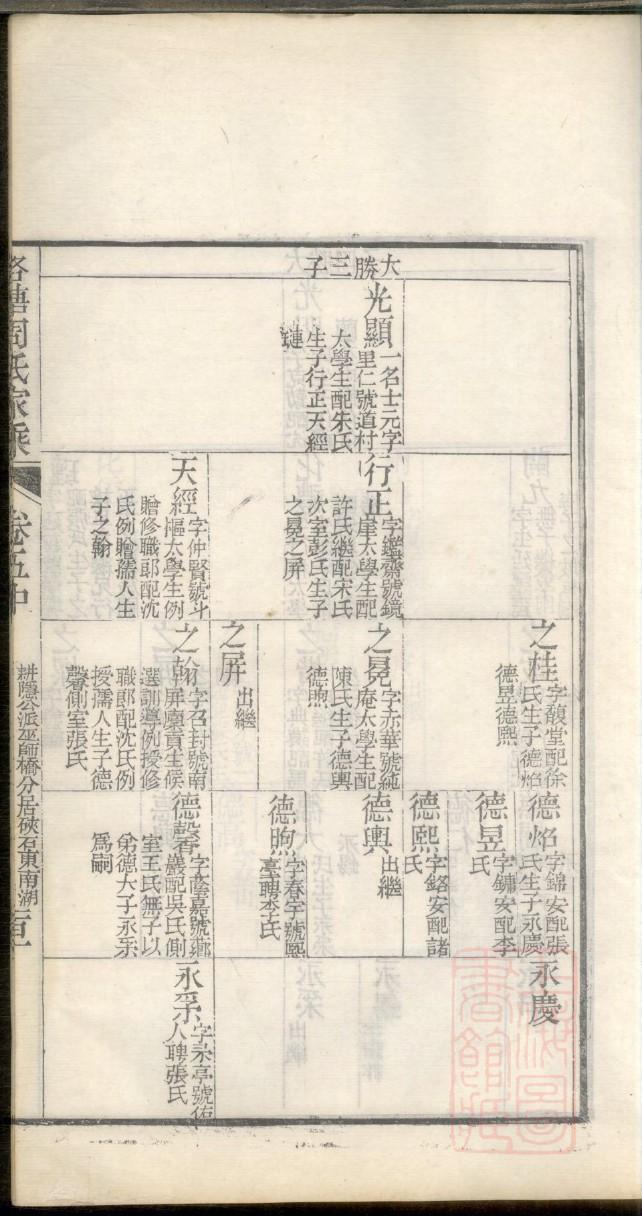 大勝三子
光顯
一名士元字
里仁號道村
太學生配朱氏
生子行正天經
璉
行正
字鑑齋號鏡
崖太學生配
許氏繼配宋氏
次室彭氏生子
之冕之屏
天經
字仲賢號斗
樞太學生例
贈修職郎配沈
氏例贈孺人生
子之翰
之桂
字馥堂配徐
氏生子德焰
德昱德熙
之冕
字亦華號純
庵太學生配
陳氏生子德輿
德煦
之屏
出繼
之翰
字召封號南
屏廩貢生候
選訓導例授修
職郎配沈氏例
授孺人生子德
馨側室張氏
德焰
字錦安配張
氏生子永慶
德昱
字鏞安配李
氏
德熙
字鉻安配諸
氏
德輿
出繼
德煦
字春字號熙
臺聘李氏
德馨
字蔭嘉號
巖配吳氏側
室王氏無子以
弟德大子永釆
為嗣
永慶
永釆
字釆亭號佑
人聘張氏
洛塘周氏家乘
卷五中
耕隱公派巫師橋分居硤石東南湖